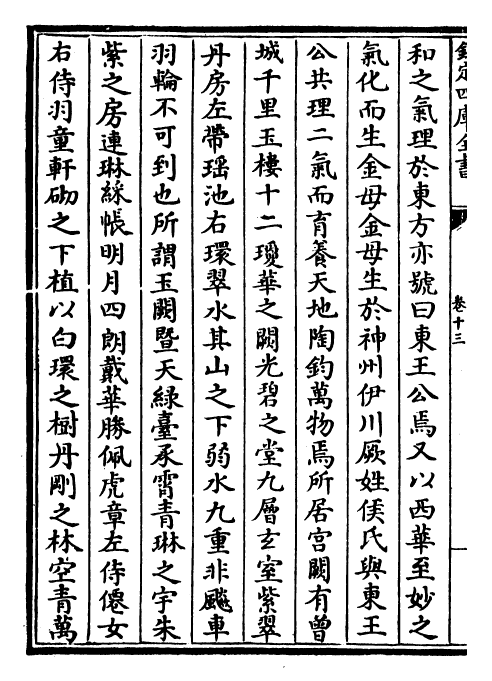 欽定四庫全書
卷十三
和之氣理於東方亦號曰東王公焉又以西華至妙之
氣化而生金母金母生於神州伊川厥姓侯氏與東王
公共理二氣而育養天地陶鈞萬物焉所居宫闕有曾
城千里玉樓十二瓊華之闕光碧之堂九層𤣥室紫翠
丹房左帶瑶池右環翠水其山之下弱水九重非飈車
羽輪不可到也所謂玉闕暨天緑臺承霄青琳之宇朱
紫之房連琳綵帳明月四朗戴華勝佩虎章左侍僊女
右侍羽童軒砌之下植以白環之樹丹剛之林空青萬